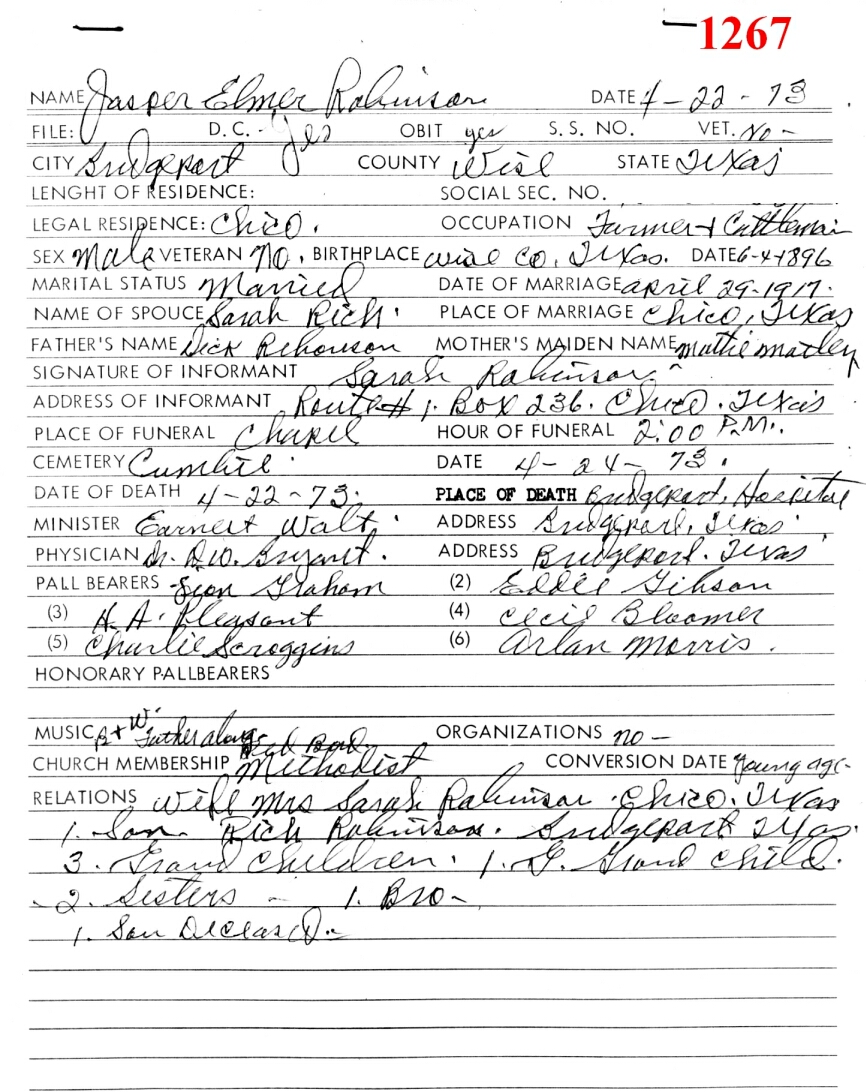 1267
NAME Jasper Elmer Robinson DATE 4-22-73
FILE: D.C. - Yes OBIT yes S. S. NO. VET. No -
CITY Bridgeport COUNTY Wise STATE Texas
LENGHT OF RESIDENCE: SOCIAL SEC. NO.
LEGAL RESIDENCE: Chico. OCCUPATION Farmer + Cattleman
SEX Male VETERAN No. BIRTHPLACE Wise Co. Texas. DATE 6-4-1896
MARITAL STATUS Married DATE OF MARRIAGE April 29-1917.
NAME OF SPOUCE Sarah Rich. PLACE OF MARRIAGE Chico, Texas
FATHER'S NAME Dick MOTHER'S MAIDEN NAME Mattie
SIGNATURE OF INFORMANT Sarah Robinson
ADDRESS OF INFORMANT Route # 1. Box 236. Chico. Texas
PLACE OF FUNERAL Chapel HOUR OF FUNERAL 2:00 P.M.
CEMETERY DATE 4-24-73.
DATE OF DEATH 4-22-73. PLACE OF DEATH Bridgeport, Hospital
MINISTER Earnest Walt. ADDRESS Bridgeport, Texas
PHYSICIAN Dr. Bryant. ADDRESS Bridgeport. Texas
PALL BEARERS Graham (2) Eddie Gibson
(3) H. A. Pleasant (4) Cecil Bloomer
(5) Charlie Scroggins (6) Arlan Morris.
HONORARY PALLBEARERS
MUSIC B + W. Father along ORGANIZATIONS no -
CHURCH MEMBERSHIP Methodist CONVERSION DATE Young age-
RELATIONS Wife Mrs Sarah Robinson. Chico. Texas
1. Son. Rich Robinson. Bridgeport Texas.
3. Grand Children. 1. G. Grand Child.
- 2. Sisters - 1. Bro -
1. Son Deceased. -